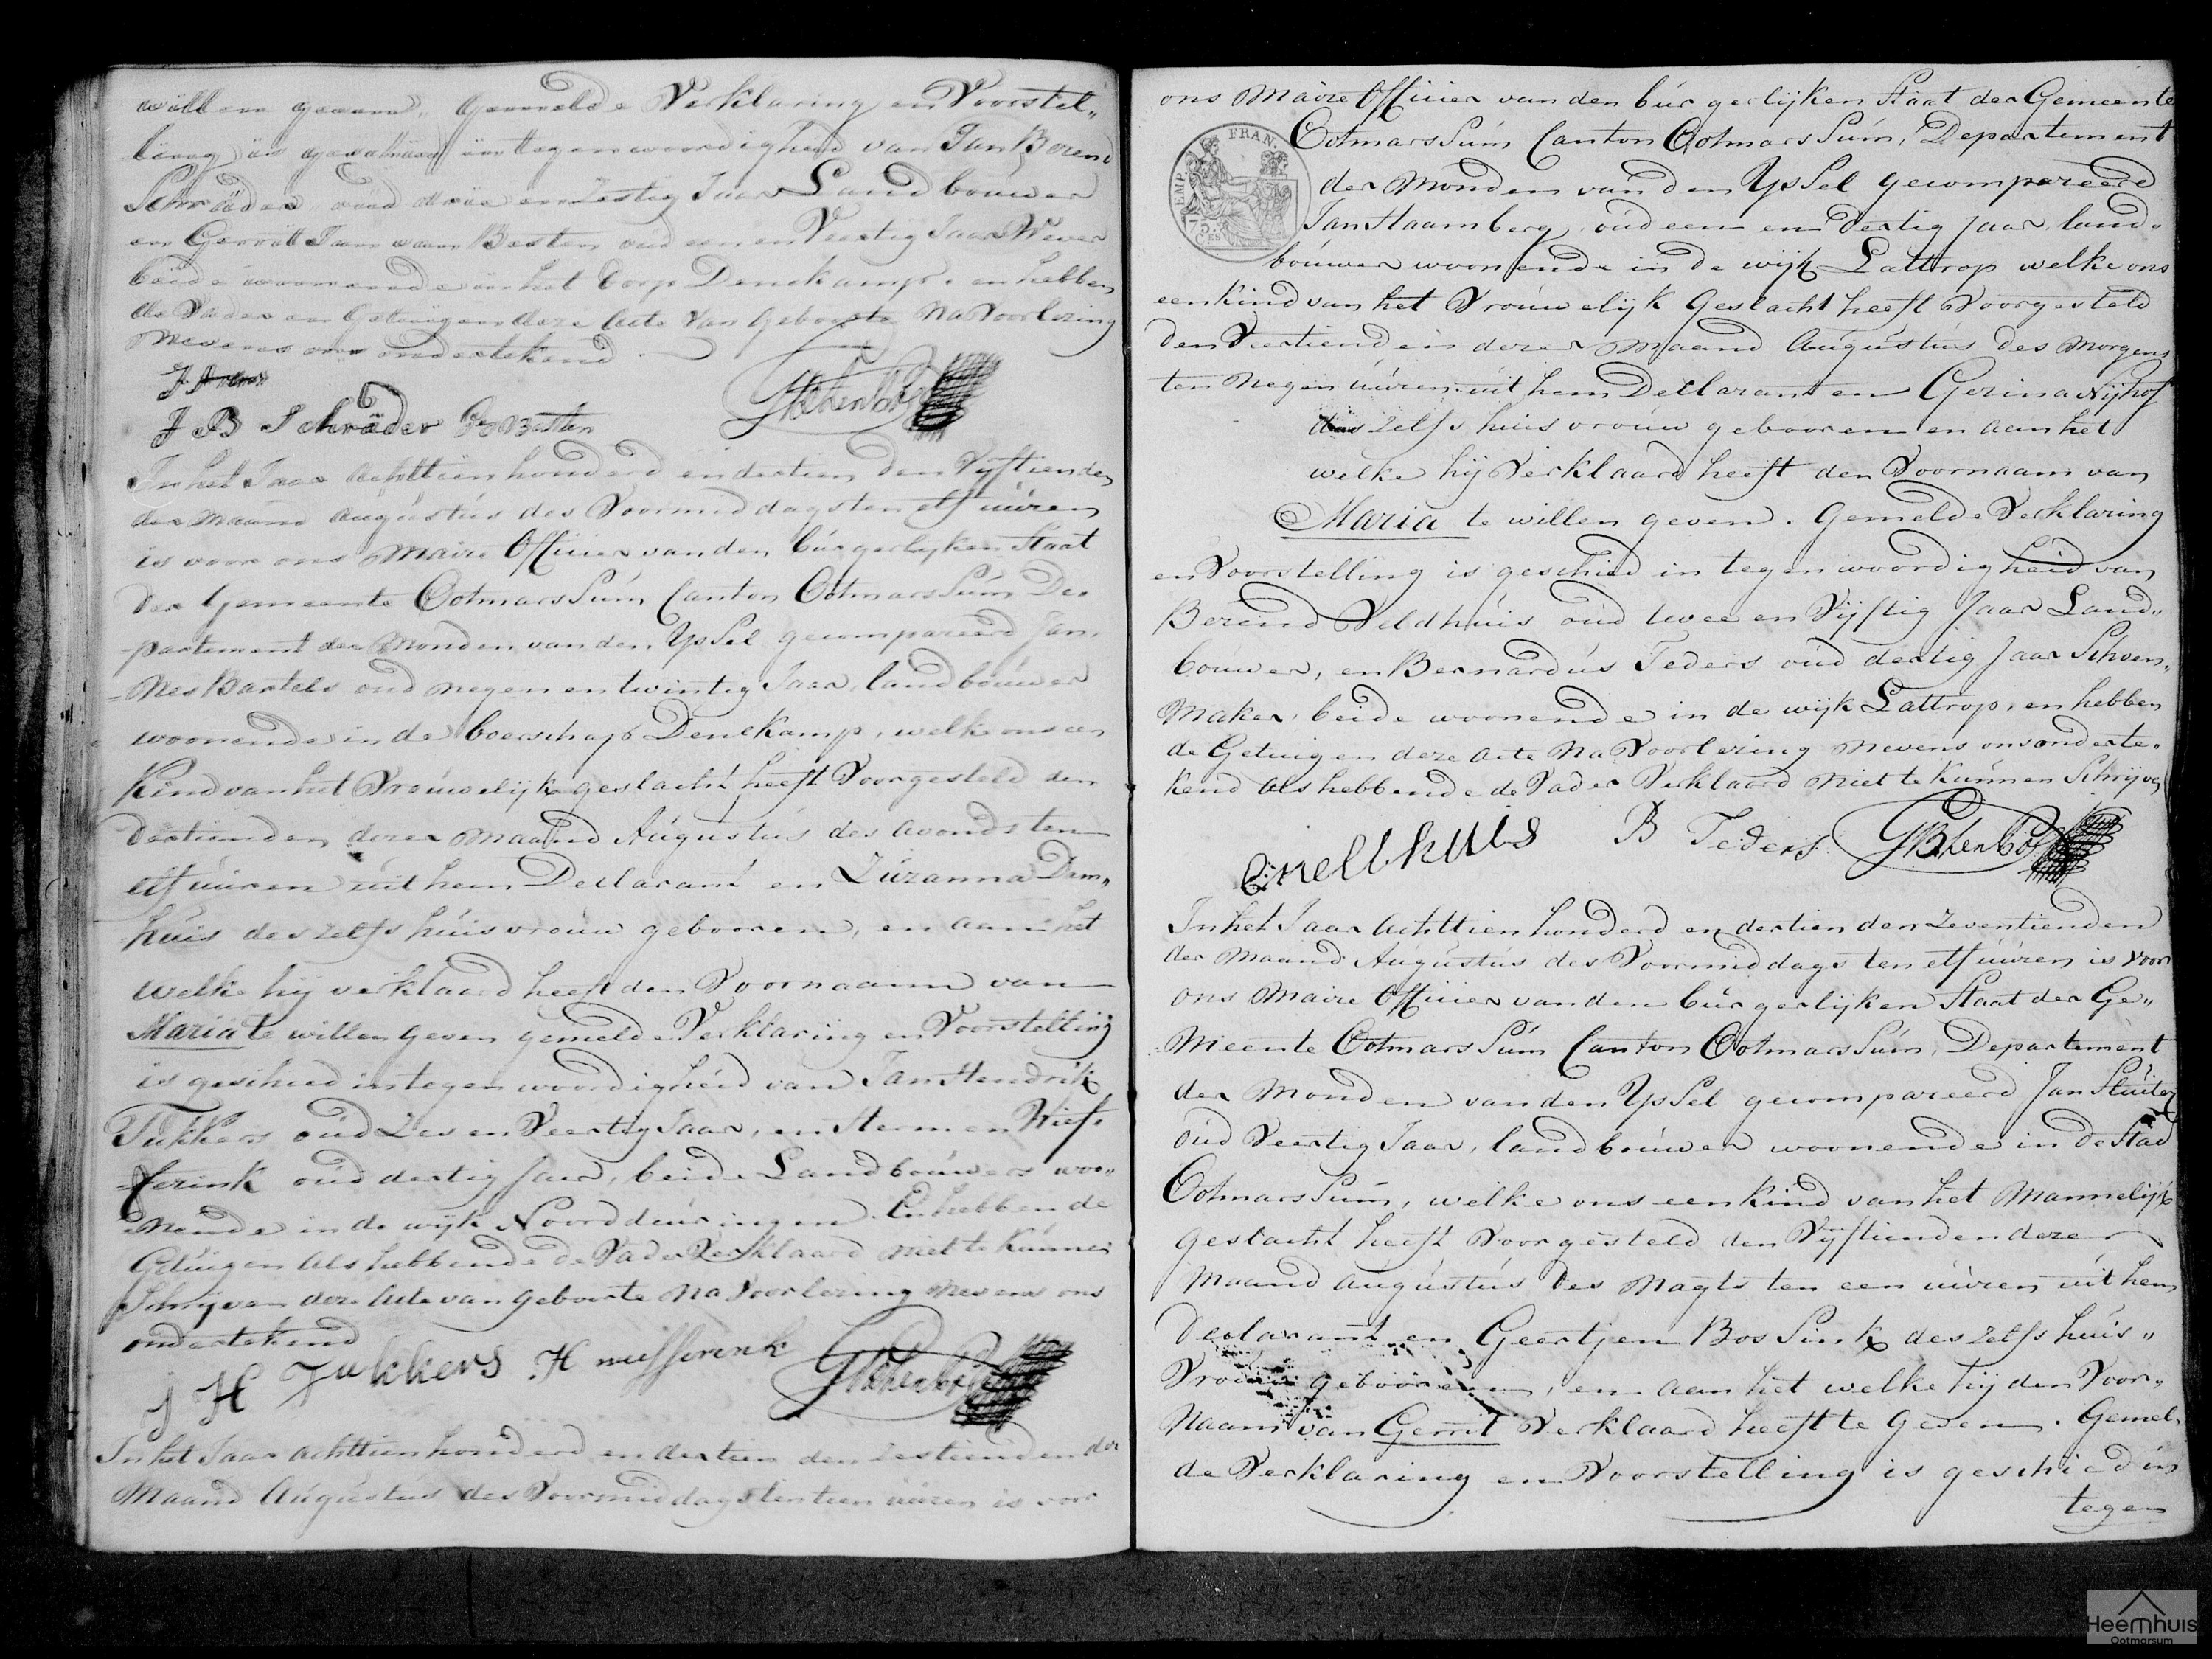 willen geven. Gemelde Verklaring en Voorstel„
ling is geschied in tegenwoordigheid van Jan Berend
Schräder oud drie en zestig Jaar Landbouwer
en Gerrit Jan van Besten oud een en Veertig Jaar Wever
beide woonende in het dorp Denekamp. en hebben
de Vader en Getuigen deze Acte van Geboorte Na Voorlezing
Nevens ons ondertekend
J B Schräder
In het Jaar Achttien honderd en dertien den Vijftienden
der Maand Augustus des Voormiddags ten elf uuren
is voor ons Maire Officier van den burgerlijken Staat
der Gemeente Ootmarssum Canton Ootmarssum De-
partement der Monden van den Yssel gecompareerd Jan-
-nes Bartels oud negen en twintig Jaar, landbouwer
woonende in de boerschap Denekamp, welke ons een
Kind van het Vrouwelijk geslacht heeft Voorgesteld den
dertienden dezer Maand Augustus des avonds ten
elf uuren uit hem Declarant en Zuzanna Dam„
huis deszelfs huisvrouw gebooren, en aan het
welke hij verklaard heeft den Voornaam van
Maria te willen geven gemelde Verklaring en Voorstelling
is geschied in tegenwoordigheid van Jan Hendrik
Tukkers oud Zes en Veertig Jaar, en Hermen Nief-
-ferink oud dertig Jaar, beide Landbouwers woo„
nende in de wijk Noorddeuringen. En hebben de
Getuigen als hebbende de Vader Verklaard niet te kunnen
Schrijven deze Acte van Geboorte Na Voorlezing Nevens ons
ondertekend
J H Tukkers H niefferink
In het Jaar achttien honderd en dertien den zestienden der
Maand Augustus des Voormiddags ten tien uuren is voor
ons Maire Officier van den burgerlijken Staat der Gemeente
EMP. FRAN.
75 CES
Ootmarssum Canton Ootmarssum, Departement
der Monden van den Yssel gecompareerd
Jan Haamberg, oud een en dertig Jaar, land-
bouwer woonende in de wijk Lattrop welke ons
een kind van het Vrouwelijk Geslacht heeft Voorgesteld
den Viertienden dezer Maand Augustus des Morgens
ten Negen uuren uit hem Declarant en Gezina Nijhof
deszelfs huisvrouw gebooren en aan het
welke hij Verklaard heeft den Voornaam van
Maria te willen geven. Gemelde Verklaring
en Voorstelling is geschied in tegenwoordigheid van
Berend Veldhuis oud twee en Vijftig Jaar Land„
bouwer, en Bernardus Teders oud dertig Jaar Schoen„
Maker, beide woonende in de wijk Lattrop, en hebben
de Getuigen deze Acte Na Voorlezing Nevens ons onderte-
kend als hebbende de Vader Verklaard Niet te kunnen Schrijven
B Teders
In het Jaar Achttien honderd en dertien den Zeventienden
der Maand Augustus des Voormiddags ten elf uuren is voor
ons Maire Officier van den burgerlijken Staat der Ge„
Meente Ootmarssum Canton Ootmarssum, Departement
der Monden van den Yssel gecompareerd Jan
oud Veertig Jaar, landbouwer woonende in de Stad
Ootmarssum, welke ons een kind van het Mannelijk
geslacht heeft Voorgesteld den Vijftienden dezer
Maand Augustus des Nagts ten een uuren uit hem
Declarant en Geertjen Bossink deszelfs huis„
Vrouw gebooren, en aan het welke hij den Voor„
Naam van Gerrit Verklaard heeft te Geven. Gemel-
de Verklaring en Voorstelling is geschied in
tegen
Heemhuis
Ootmarsum